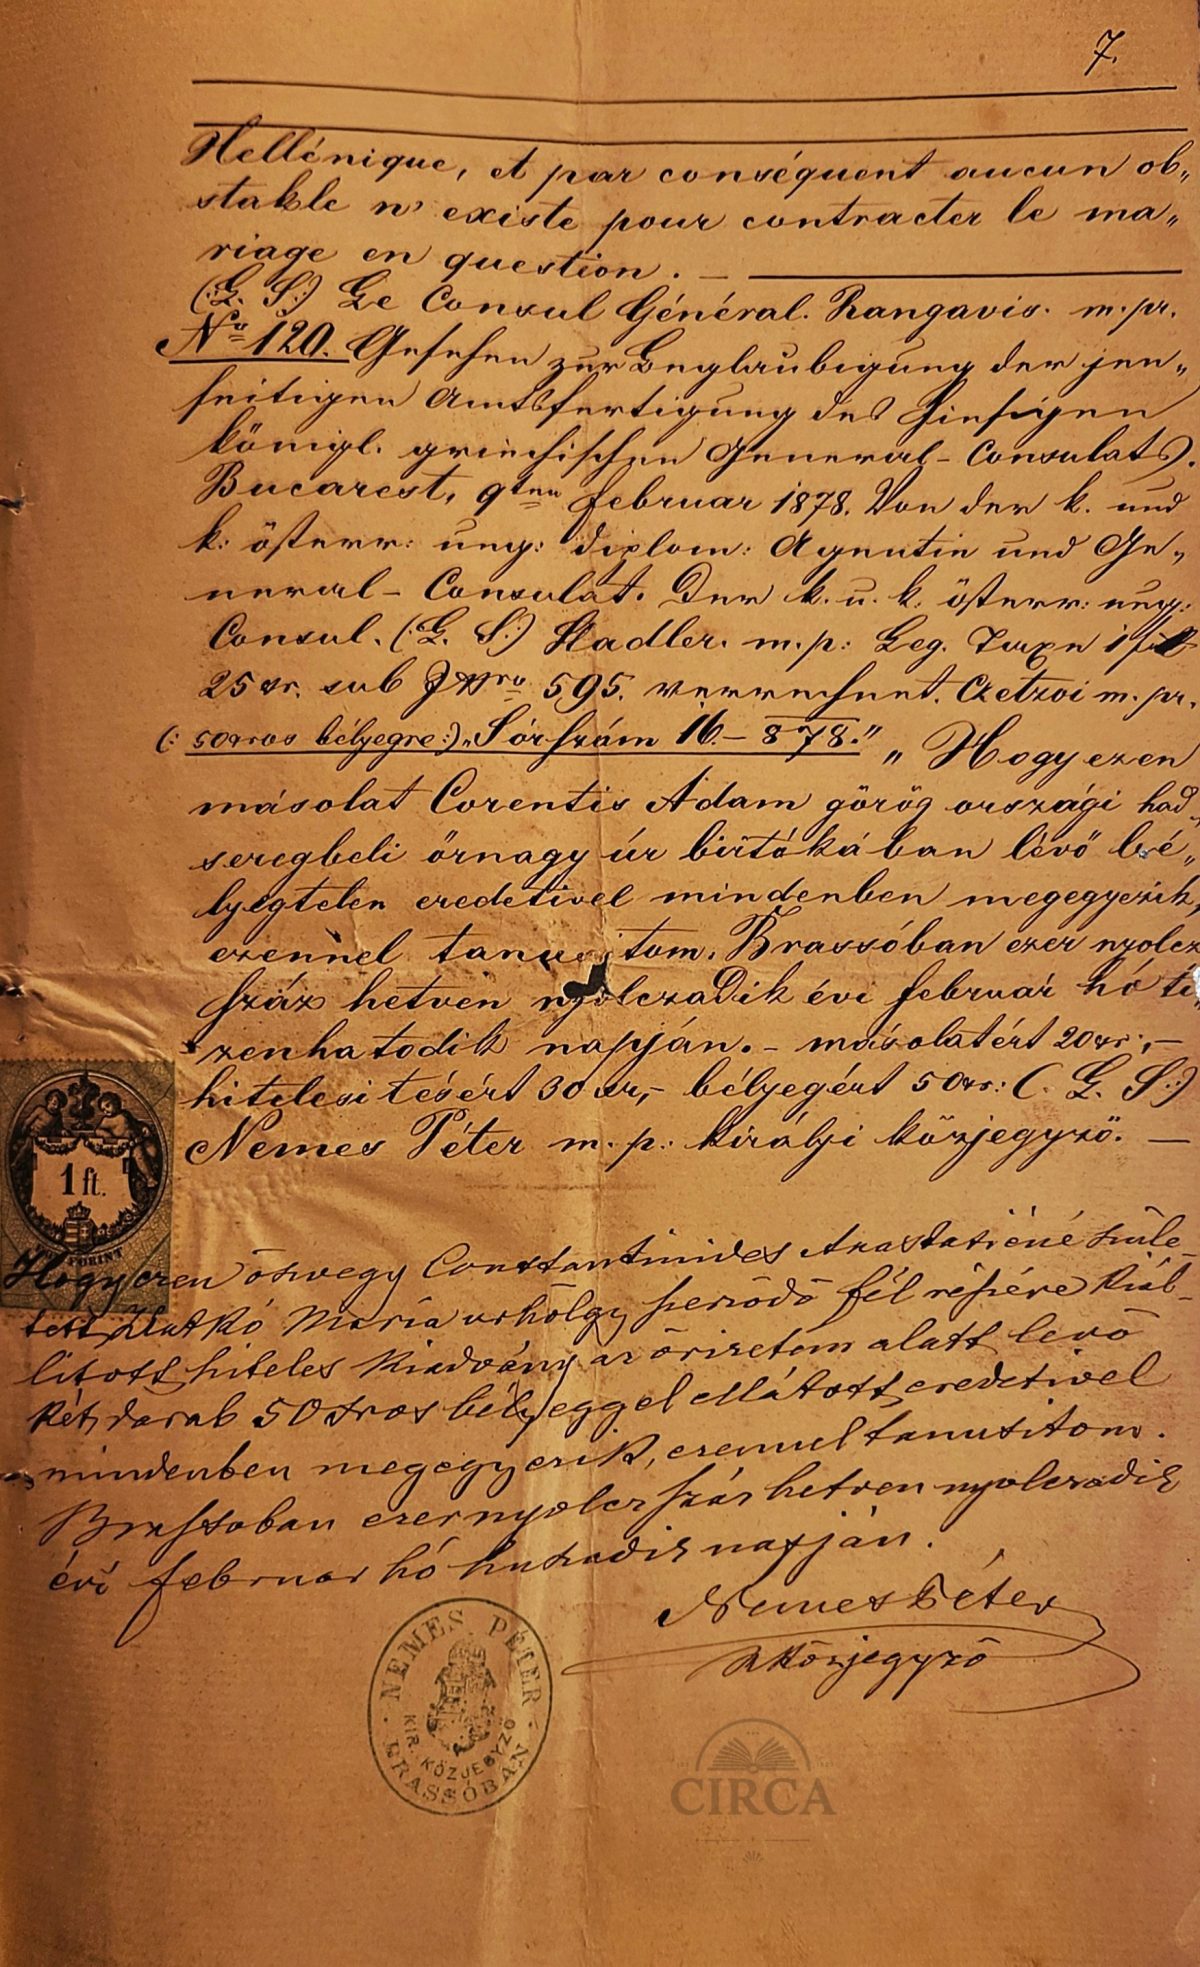 7.
Hellénique, et par conséquent aucun ob„
stakle n'existe pour contracter le ma„
riage en question. —
(:L. S:) Le Consul Général. Rangavis. m. pr.
No 120. Gesehen zur Beglaubigung der jen„
seitigen Amtsfertigung des hiesigen
königl. griechischen General-Consulats.
Bucarest, 9ten Februar 1878. Von der k. und
k: österr: ung: diplom: Agentie und Ge„
neral-Consulat. Der k. u. k. österr: ung:
Consul. (:L. S:) Stadler. m. p: Leg. Taxe 1
25 kr. sub 595. verrechnet. Czetzoi m. pr.
(: 50 kros bélyegre:) „Sórszám 16.– 878.” „Hogy ezen
másolat Corentis Adam görög országi had„
seregbeli őrnagy úr birtókában lévő bé„
lyegtelen eredetivel mindenben megegyezik,
ezennel tanusitom. Brassóban ezer nyolcz
száz hetven nyolczadik évi február hó ti„
zenhatodik napján. – másolatért 20 kr:, –
hitelesitésért 30 kr, – bélyegért 50 kr: (. L. S:)
Nemes Péter m. p: királyi közjegyző. —
1 ft.
FORINT
Hogy ezen özvegy Constantinides Anastasiéné szüle-
tett Zlatkó Maria urhölgy szerződő fél részére kiál-
litott hiteles kiadvány az őrizetem alatt levő
két darab 50 kros bélyeggel ellátott eredetivel
mindenben megegyezik, ezennel tanusitom.
Brassoban ezernyolczszáz hetven nyolczadik
évi február hó huszadik napján.
Nemes Péter
kközjegyző
NEMES PÉTER
KIR. KÖZJEGYZŐ
BRASSÓBAN
CIRCA